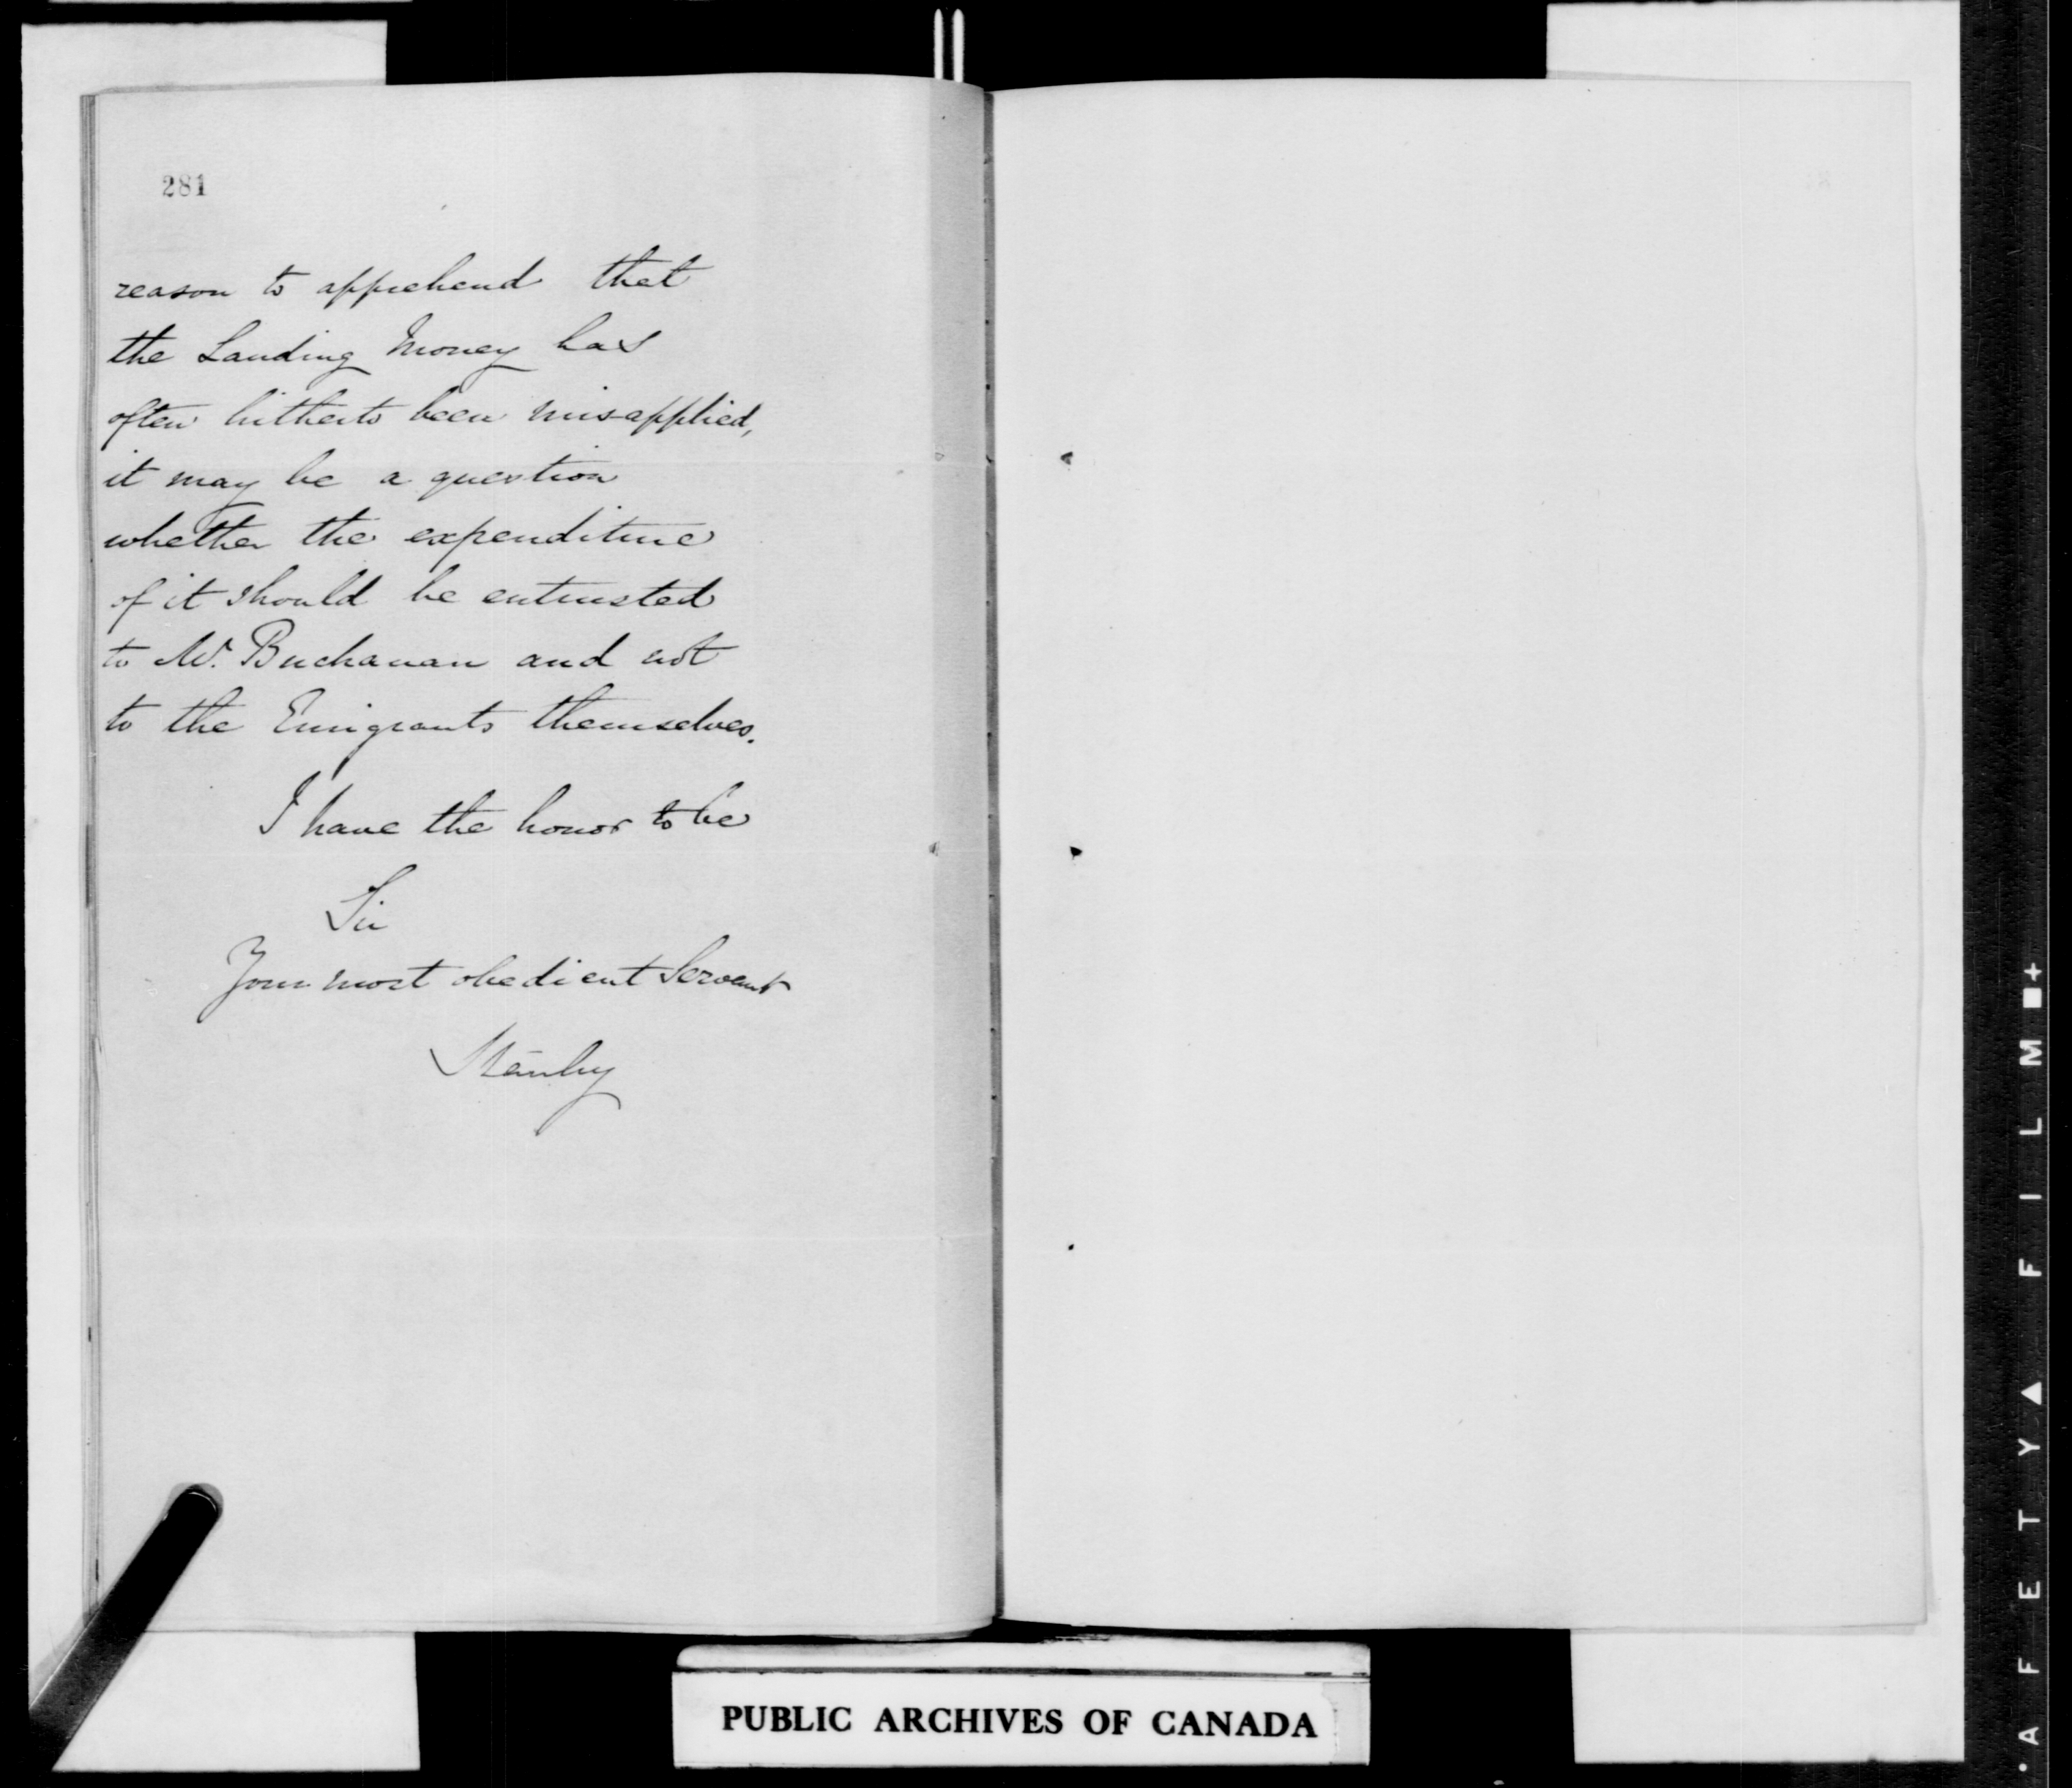 281
reason to apprehend that
the Landing Money has
often hitherto been mis-applied,
it may be a question
whether the expenditure
of it should be entrusted
to Mr. Buchanan and not
to the Emigrants themselves.
I have the honor to be
Sir
Your most obedient Servant
Stanley
PUBLIC ARCHIVES OF CANADA
AFETY FILM